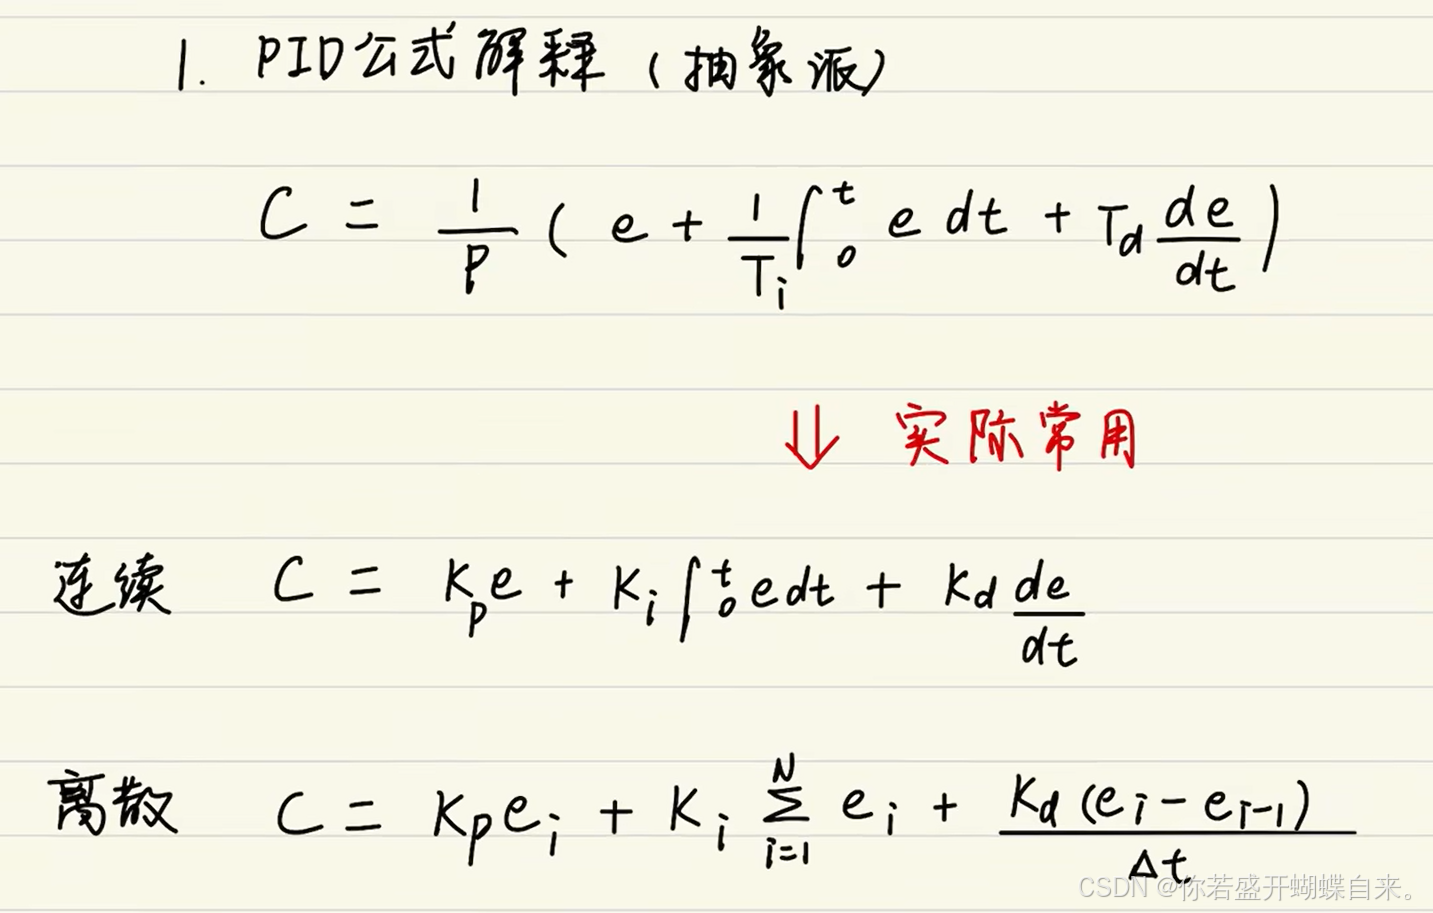 1. PID公式解释（抽象派）
C = 1/P ( e + 1/Ti ∫₀ᵗ e dt + Td de/dt )
⇓ 实际常用
连续 C = Kp e + Ki ∫₀ᵗ e dt + Kd de/dt
离散 C = Kp ei + Ki Σ_{i=1}^{N} ei + Kd (ei - ei-1) / Δt
CSDN @你若盛开蝴蝶自来。